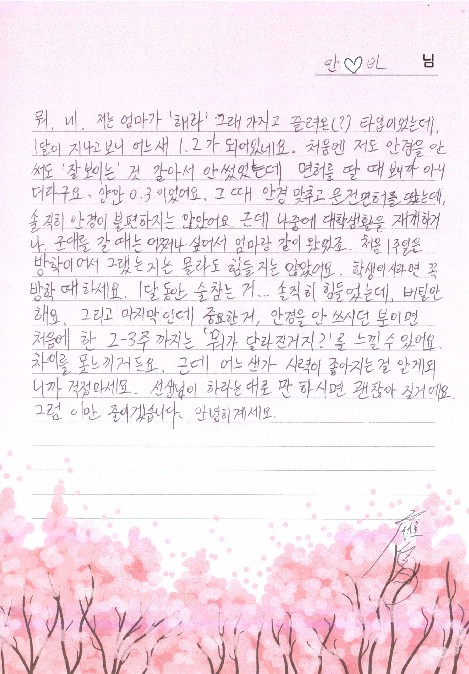 안♡반 님
뭐, 네. 저는 엄마가 '해라' 그래가지고 끌려온(??) 타입이었는데,
1달이 지나고보니 어느새 1.2가 되어있네요. 처음엔 저도 안경을 안
써도 '잘보이는' 것 같아서 안썼었는데 면허를 딸 때 보니까 아니
더라구요. 양안 0.3이었어요. 그 때 안경 맞추고 운전면허를 땄는데,
솔직히 안경이 불편하지는 않았어요. 근데 나중에 대학생활을 재개하거
나, 군대를 갈 때는 어쩌나 싶어서 엄마랑 같이 왔었죠. 처음 1주일은
방학이어서 그랬는지는 몰라도 힘들지는 않았어요. 학생이시라면 꼭
방학 때 하세요. 1달동안 술참는 거... 솔직히 힘들었는데, 버틸만
해요. 그리고 마지막인데 중요한거, 안경을 안 쓰시던 분이면
처음에 한 2-3주 까지는 '뭐가 달라진거지?'를 느낄 수 있어요.
차이를 못느끼거든요. 근데 어느샌가 시력이 좋아지는 걸 알게되
니까 걱정마세요. 선생님이 하라는대로 만 하시면 괜찮아 질거에요.
그럼 이만 줄이겠습니다. 안녕히계세요.